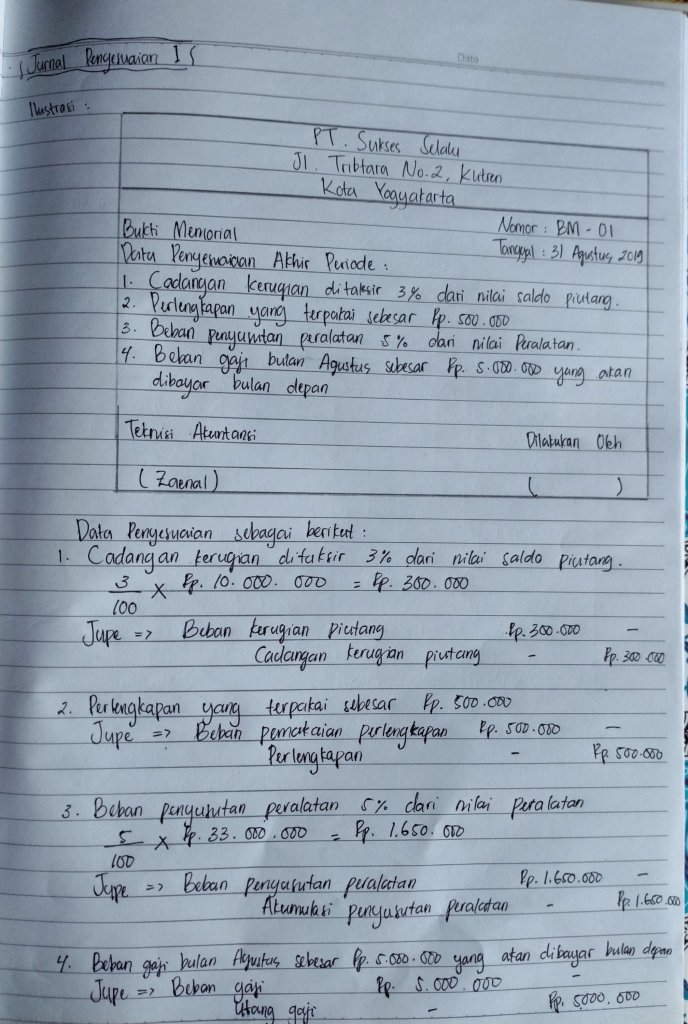 Jurnal Penyesuaian I
Date
Ilustrasi :
PT. Sukses Selalu
Jl. Tribtara No.2, Kutren
Kota Yogyakarta
Bukti Memorial
Nomor : BM - 01
Data Penyesuaian Akhir Periode :
Tanggal : 31 Agustus, 2019
1. Cadangan kerugian ditaksir 3% dari nilai saldo piutang.
2. Perlengkapan yang terpakai sebesar Rp. 500.000
3. Beban penyusutan peralatan 5% dari nilai Peralatan.
4. Beban gaji bulan Agustus sebesar Rp. 5.000.000 yang akan
dibayar bulan depan
Teknisi Akuntansi
Dilakukan Oleh
(Zaenal)
( )
Data Penyesuaian sebagai berikut :
1. Cadangan kerugian ditaksir 3% dari nilai saldo piutang.
3/100 × Rp. 10.000.000 = Rp. 300.000
Jupe => Beban kerugian piutang Rp. 300.000 -
Cadangan kerugian piutang - Rp. 300.000
2. Perlengkapan yang terpakai sebesar Rp. 500.000
Jupe => Beban pemakaian perlengkapan Rp. 500.000 -
Perlengkapan - Rp. 500.000
3. Beban penyusutan peralatan 5% dari nilai peralatan
5/100 × Rp. 33.000.000 = Rp. 1.650.000
Jupe => Beban penyusutan peralatan Rp. 1.650.000 -
Akumulasi penyusutan peralatan - Rp. 1.650.000
4. Beban gaji bulan Agustus sebesar Rp. 5.000.000 yang akan dibayar bulan depan
Jupe => Beban gaji Rp. 5.000.000 -
Utang gaji - Rp. 5.000.000